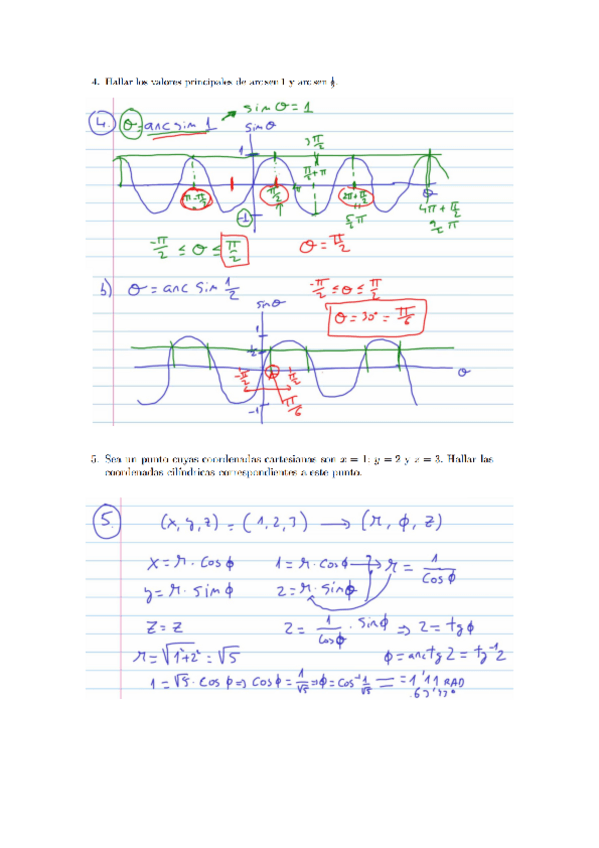 4. Hallar los valores principales de arcsen 1 y arcsen ½.
4. θ = arc sim 1 → sim θ = 1
sim θ
1
3π/2
π/2 + π
-π-π/2
π/2
π
2π + π/2
5/2 π
4π + π/2
9/2 π
-1
-π/2 ≤ θ ≤ π/2
θ = π/2
b) θ = arc sim 1/2
-π/2 ≤ θ ≤ π/2
θ = 30° = π/6
sim θ
1
1/2
-π/2
π/2
θ
π/6
-1
5. Sea un punto cuyas coordenadas cartesianas son x = 1; y = 2 y z = 3. Hallar las
coordenadas cilíndricas correspondientes a este punto.
5. (x, y, z) = (1, 2, 3) → (r, ϕ, z)
x = r · cos ϕ 1 = r · cos ϕ → r = 1/cos ϕ
y = r · sim ϕ 2 = r · sim ϕ
z = z 2 = 1/cos ϕ · sim ϕ ⇒ 2 = tg ϕ
r = √1²+2² = √5 ϕ = arctg 2 = tg⁻¹ 2
1 = √5 · cos ϕ ⇒ cos ϕ = 1/√5 ⇒ ϕ = cos⁻¹ 1/√5 = = 1'11 RAD